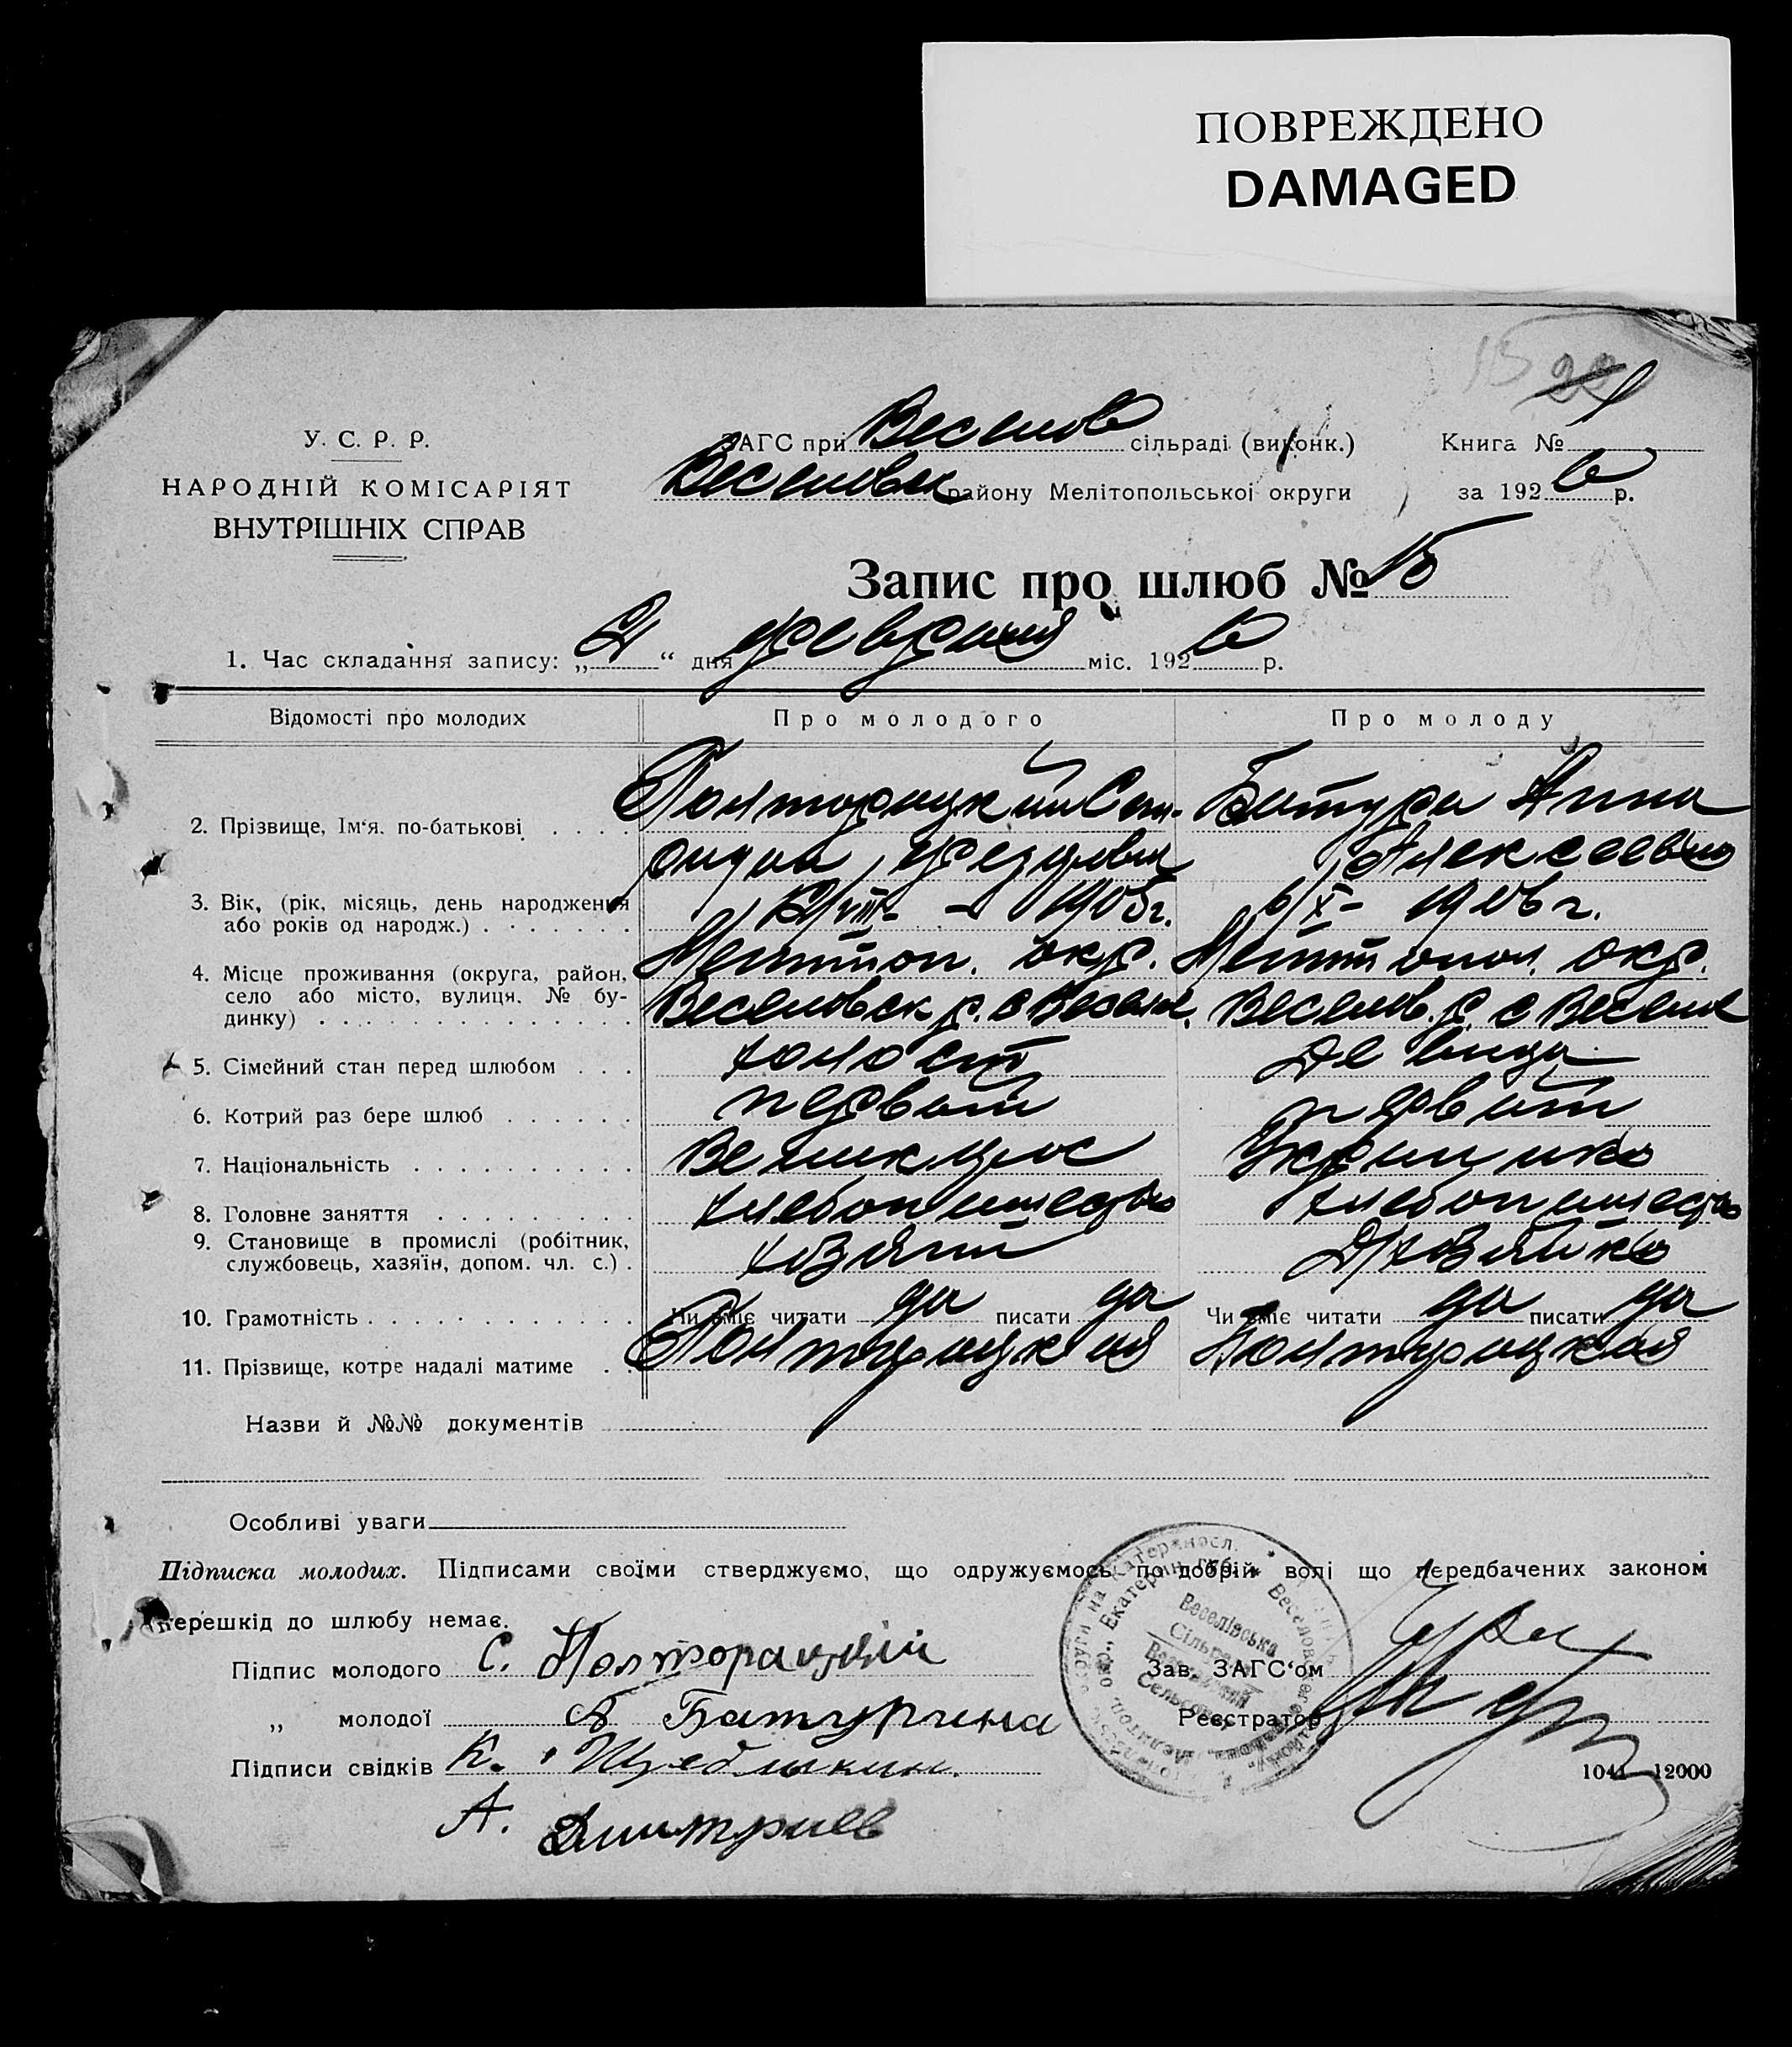 ПОВРЕЖДЕНО
DAMAGED
У. С. Р. Р.
НАРОДНІЙ КОМІСАРІЯТ
ВНУТРІШНІХ СПРАВ
ЗАГС при Веселов сільраді (виконк.) Книга № 1
Веселовск району Мелітопольської округи за 1926 р.
Запис про шлюб № 15
1. Час складання запису: „2“ дня февраля міс. 1926 р.
Відомості про молодих Про молодого Про молоду
2. Прізвище, Ім‘я, по-батькові Полторацкий Батура Анна
Федоров Алексеевна
3. Вік, (рік, місяць, день народження
або років од народж.) VIII – 1905 г. 6/X – 1906 г.
4. Місце проживання (округа, район,
село або місто, вулиця, № будинку)
Мелитоп. окр. Мелитопол. окр.
Веселовск р. с Весел. Веселов. р. с Весел
5. Сімейний стан перед шлюбом холост девица
6. Котрий раз бере шлюб первый первый
7. Національність Великорос Украинка
8. Головне заняття хлебопашество хлебопашество
9. Становище в промислі (робітник,
службовець, хазяїн, допом. чл. с.) хозяин Д/хозяйка
10. Грамотність Чи вміє читати да писати да Чи вміє читати да писати да
11. Прізвище, котре надалі матиме Полторацкий Полторацкая
Назви й №№ документів
Особливі уваги
Підписка молодих. Підписами своїми стверджуємо, що одружуємось по добрій волі що передбачених законом
перешкід до шлюбу немає.
Підпис молодого С. Полторацкий Зав. ЗАГС‘ом
„ молодої А Батурина Реєстратор
Підписи свідків К. Щеблыкин.
А. Дмитриев
Веселівська
Сільрада
1041 12000